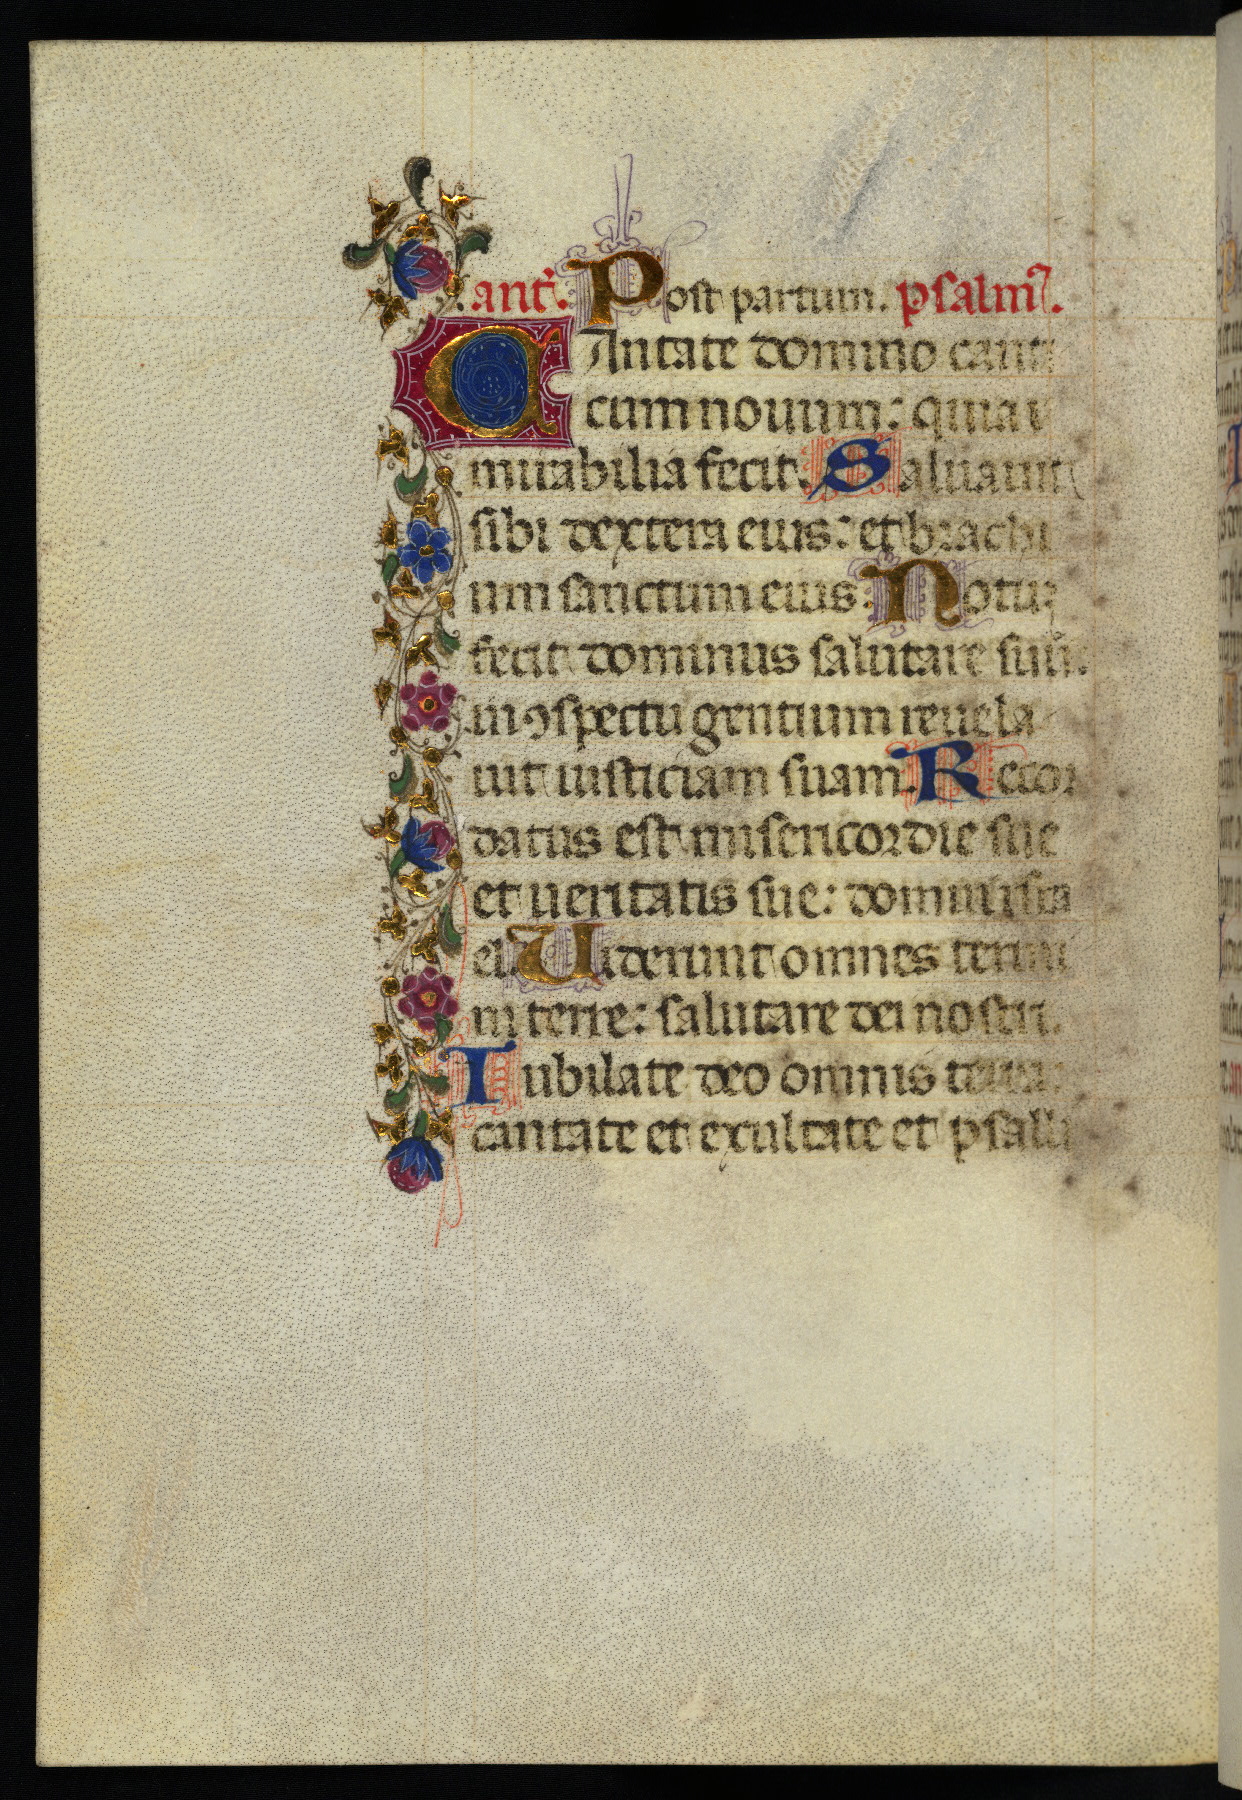 ant̃. Post partum. psalm̃.
CAntate domino canti
cum nouum: quia
mirabilia fecit. Saluauit
sibi dextera eius: et brachi
um sanctum eius Notũ
fecit dominus salutare suũ:
in ꝯspectu gentium reuela
uit iusticiam suam. Recor
datus est misericordie sue
et ueritatis sue: domui isra
el. Uiderunt omnes termi
ni terre: salutare dei nostri.
Iubilate deo omnis terra:
cantate et exultate et psalli